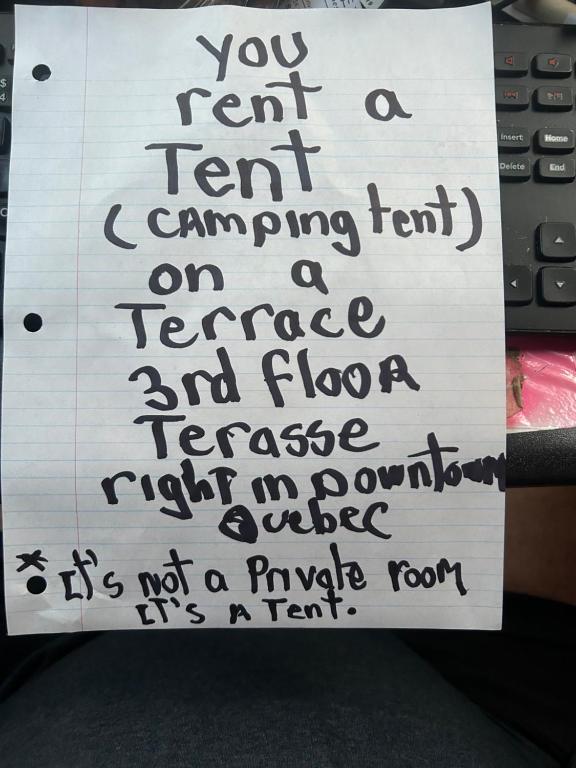 You
rent a
Tent
(CAmping tent)
on a
Terrace
3rd flooR
Terasse
right in Downtown
Quebec
* It's not a Private room
IT'S A Tent.
$
4
Insert Home
Delete End